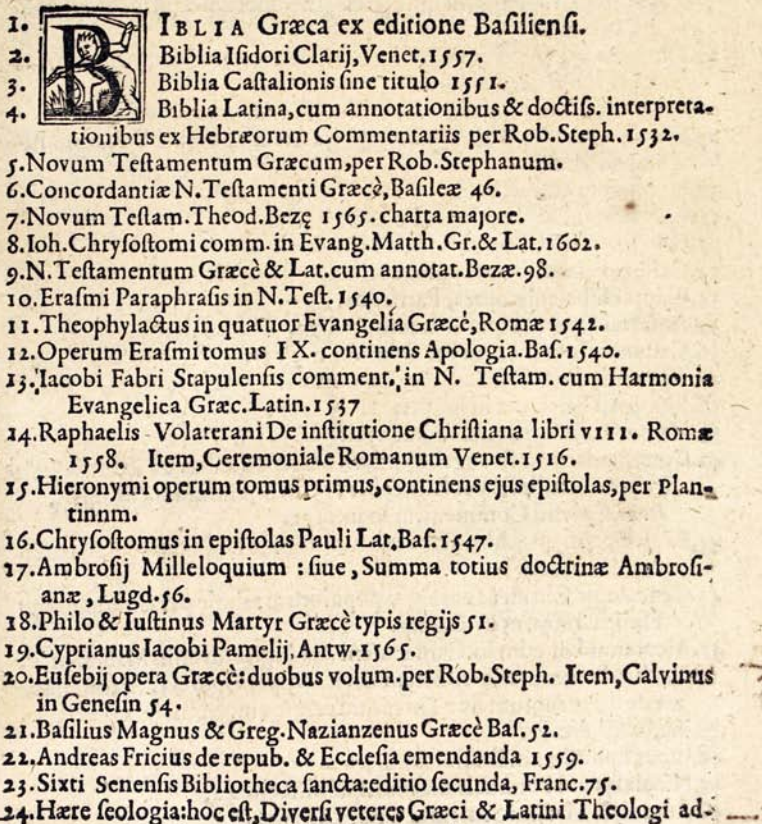 1. BIBLIA Græca ex editione Baſilienſi.
2. Biblia Iſidori Clarij, Venet. 1557.
3. Biblia Caſtalionis ſine titulo 1551.
4. Biblia Latina, cum annotationibus & doctiſs. interpreta-
tionibus ex Hebræorum Commentariis per Rob. Steph. 1532.
5. Novum Teſtamentum Græcum, per Rob. Stephanum.
6. Concordantiæ N. Teſtamenti Græcè, Baſileæ 46.
7. Novum Teſtam. Theod. Bezę 1565. charta majore.
8. Ioh. Chryſoſtomi comm. in Evang. Matth. Gr. & Lat. 1602.
9. N. Teſtamentum Græcè & Lat. cum annotat. Bezæ. 98.
10. Eraſmi Paraphraſis in N. Teſt. 1540.
11. Theophylactus in quatuor Evangelia Græcè, Romæ 1542.
12. Operum Eraſmi tomus IX. continens Apologia. Baſ. 1540.
13. Iacobi Fabri Stapulenſis comment. in N. Teſtam. cum Harmonia
Evangelica Græc. Latin. 1537
14. Raphaelis Volaterani De inſtitutione Chriſtiana libri VIII. Romæ
1558. Item, Ceremoniale Romanum Venet. 1516.
15. Hieronymi operum tomus primus, continens ejus epiſtolas, per Plan-
tinnm.
16. Chryſoſtomus in epiſtolas Pauli Lat. Baſ. 1547.
17. Ambroſij Milleloquium : ſiue, Summa totius doctrinæ Ambroſi-
anæ, Lugd. 56.
18. Philo & Iuſtinus Martyr Græcè typis regijs 51.
19. Cyprianus Iacobi Pamelij, Antw. 1565.
20. Euſebij opera Græcè: duobus volum. per Rob. Steph. Item, Calvinus
in Geneſin 54.
21. Baſilius Magnus & Greg. Nazianzenus Græcè Baſ. 52.
22. Andreas Fricius de repub. & Eccleſia emendanda 1559.
23. Sixti Senenſis Bibliotheca ſancta: editio ſecunda, Franc. 75.
24. Hære ſeologia: hoc eſt, Diverſi veteres Græci & Latini Theologi ad-